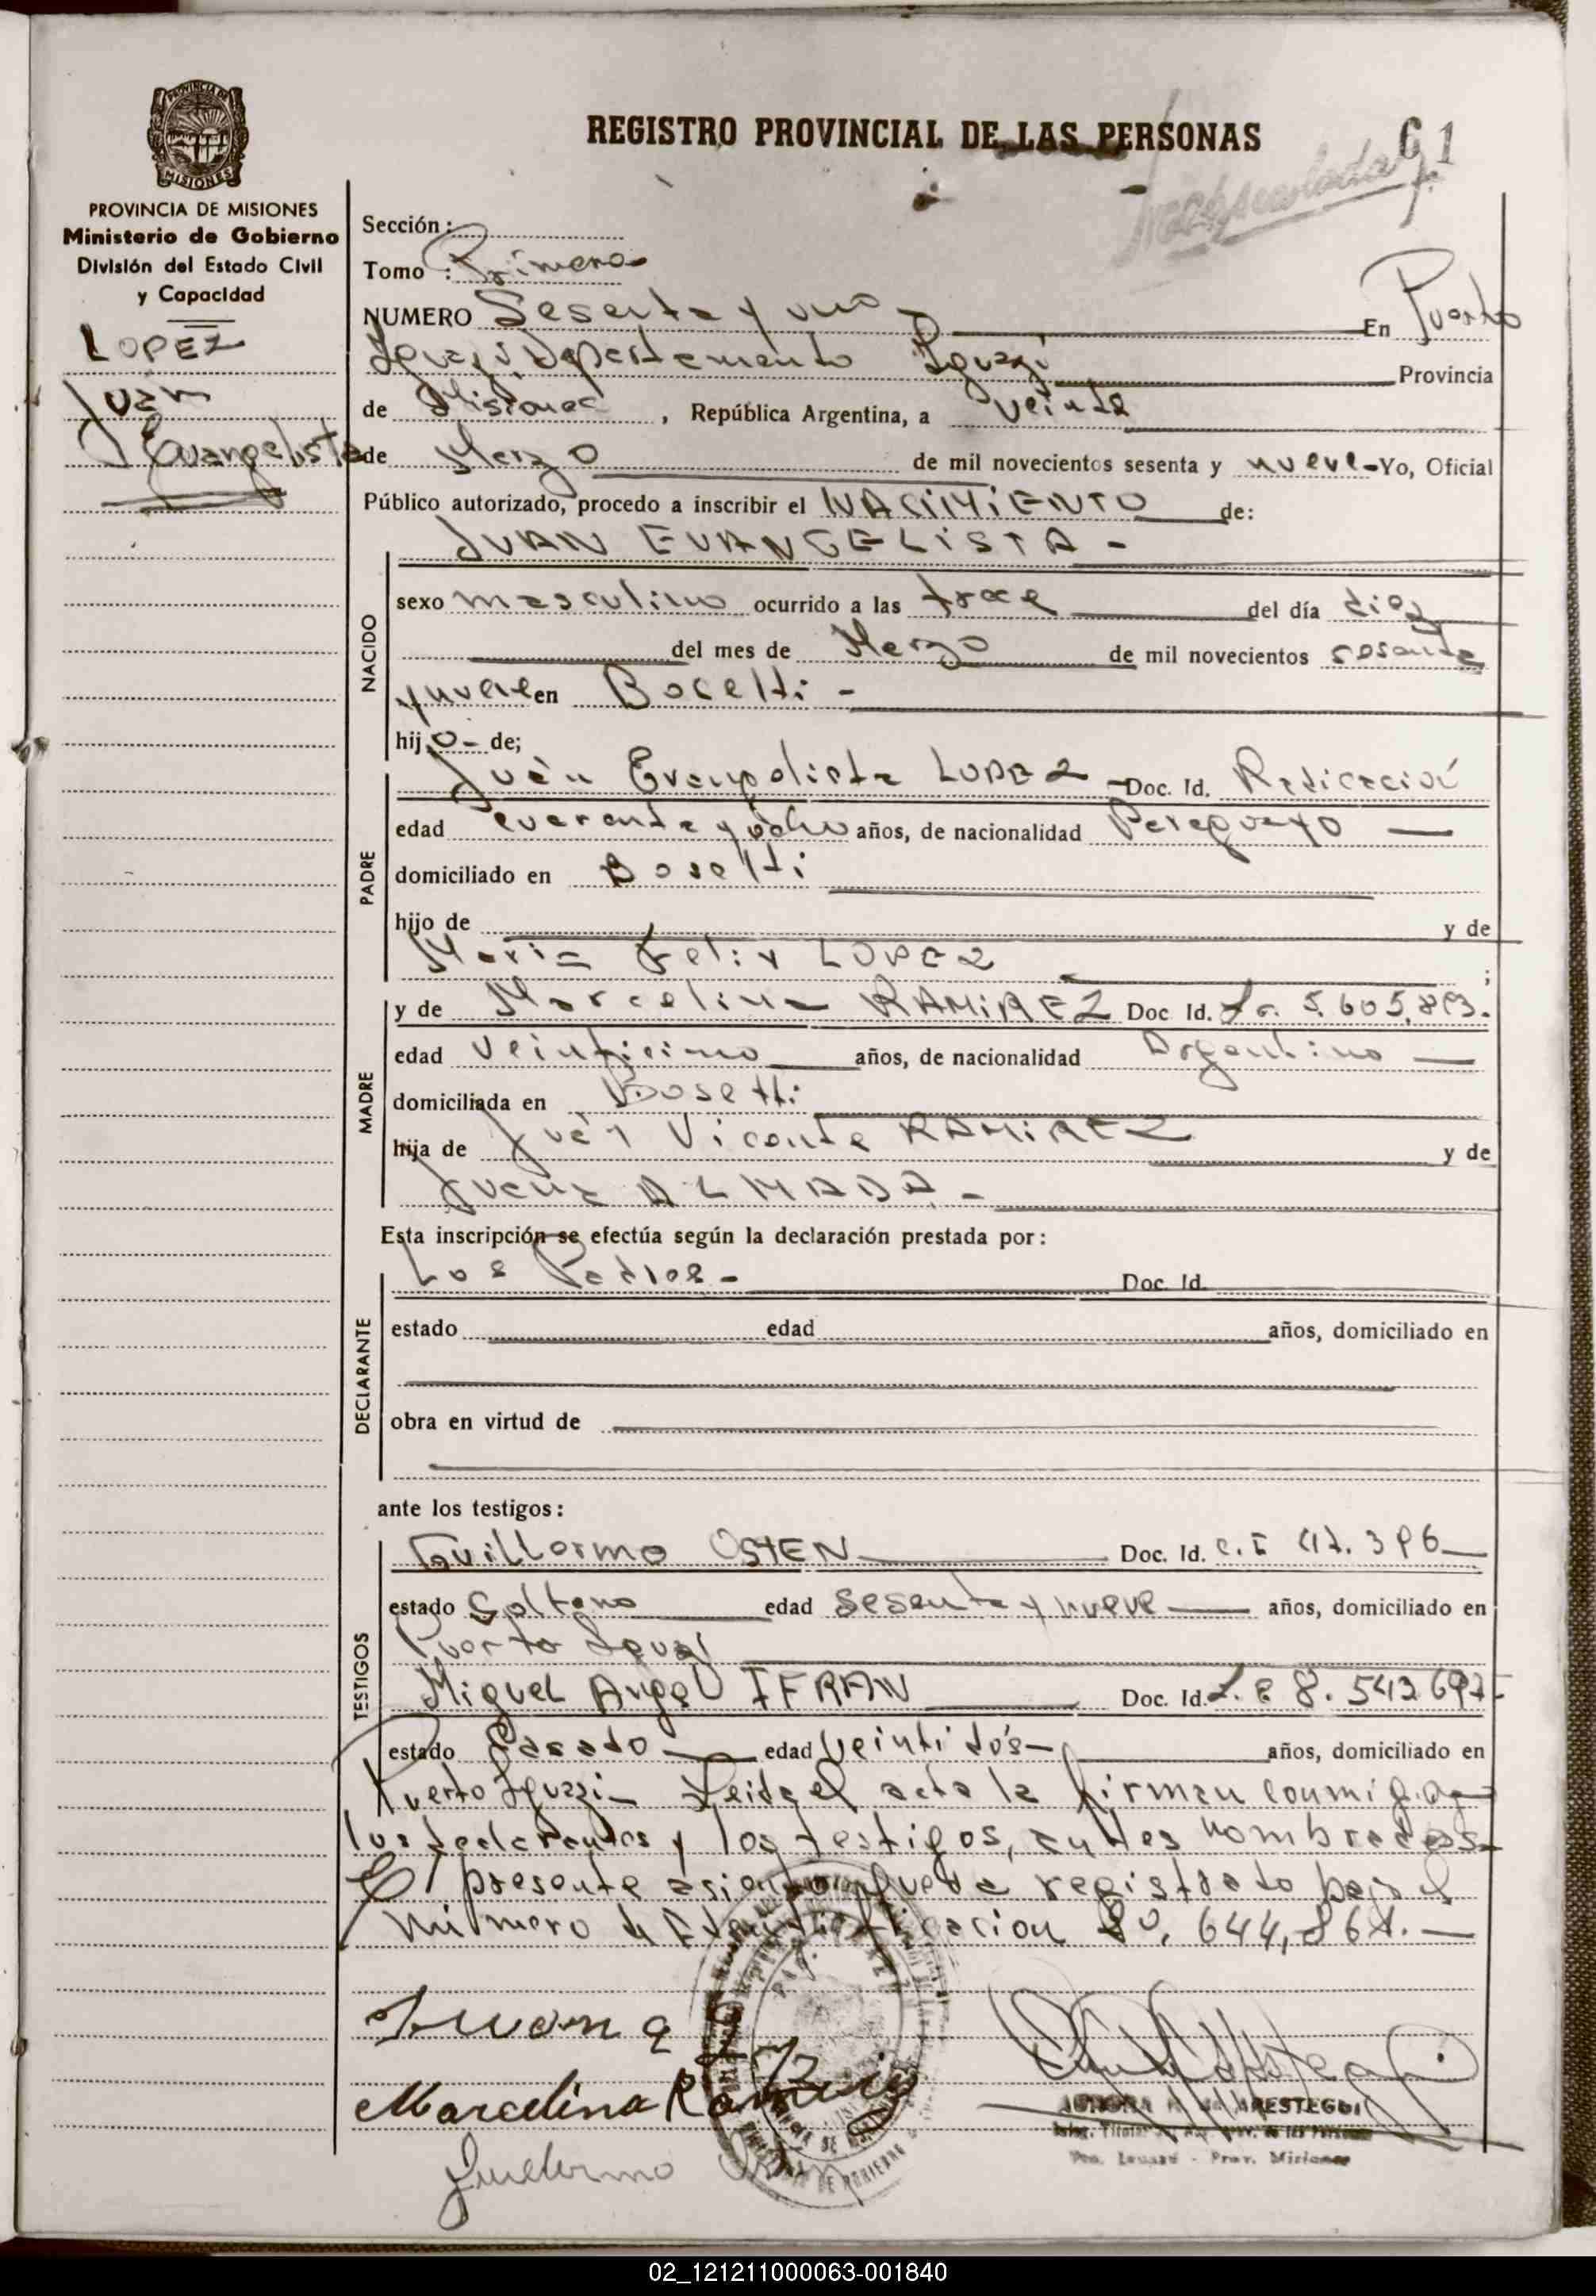 REGISTRO PROVINCIAL DE LAS PERSONAS
61
MISIONES
PROVINCIA DE MISIONES
Ministerio de Gobierno
División del Estado Civil
y Capacidad
LOPEZ
Juan
Evangelista
Sección:
Tomo: Primero
NUMERO Sesenta y uno En Puerto
Iguazú, Departamento Iguazú Provincia
de Misiones, República Argentina, a veinte
de Marzo de mil novecientos sesenta y nueve - Yo, Oficial
Público autorizado, procedo a inscribir el NACIMIENTO de:
JUAN EVANGELISTA -
NACIDO
sexo masculino ocurrido a las trece del día diez
del mes de Marzo de mil novecientos sesenta
y nueve en Bocelti -
hijo - de;
PADRE
Juan Evangelista LOPEZ - Doc. Id. Radicación
edad cuarenta y ocho años, de nacionalidad Paraguayo
domiciliado en Boselti
hijo de y de
Maria Felix LOPEZ ;
MADRE
y de Marcelina RAMIREZ Doc Id. 5.605.893.
edad veinticinco años, de nacionalidad Argentina
domiciliada en Bosetti
hija de Juan Vicente RAMIREZ y de
Juana ALMADA -
Esta inscripción se efectúa según la declaración prestada por:
DECLARANTE
Los Padres - Doc. Id.
estado edad años, domiciliado en
obra en virtud de
ante los testigos:
TESTIGOS
Guillermo OSTEN Doc. Id. C.I 47.396
estado Soltero edad sesenta y nueve años, domiciliado en
Puerto Iguazú
Miguel Angel IFRAN Doc. Id. L.E 8.542.697-
estado Casado edad veintidós - años, domiciliado en
Puerto Iguazú - Leida el acta la firman conmigo
los declarantes y los testigos, antes nombrados -
El presente asiento queda registrado bajo el
número de Identificación 20.644.861. -
Juan e
Marcelina Ramirez
Guillermo Osten
AURORA ARESTEGUI
Pto. Iguazú - Prov. Misiones
02_121211000063-001840